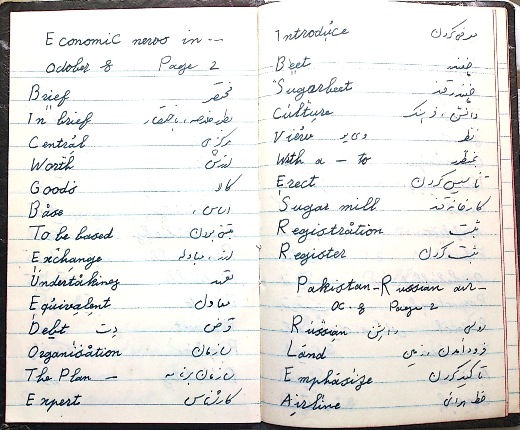 Economic news in --
October 8 Page 2
Brief مختصر
In brief بطور خلاصه، باختصار
Central مرکزی
Worth ارزش
Goods کالا
Base اساس،
To be based مبتنی بودن
Exchange ارز، مبادله
Undertaking تعهد
Equivalent معادل
Debt دت قرض
Organisation سازمان
The Plan — سازمان برنامه
Expert کارشناس
Introduce معرفی کردن
Beet چغندر
Sugarbeet چغندر قند
Culture دانش، فرهنگ
View ویو نظر
With a — to بمنظور
Erect تأسیس کردن
Sugar mill کارخانه قند
Registration ثبت
Register ثبت کردن
Pakistan-Russian air-
Oc. 8 Page 2
Russian روسی
Land فرود آمدن، زمین
Emphasize تأکید کردن
Airline خط هوائی